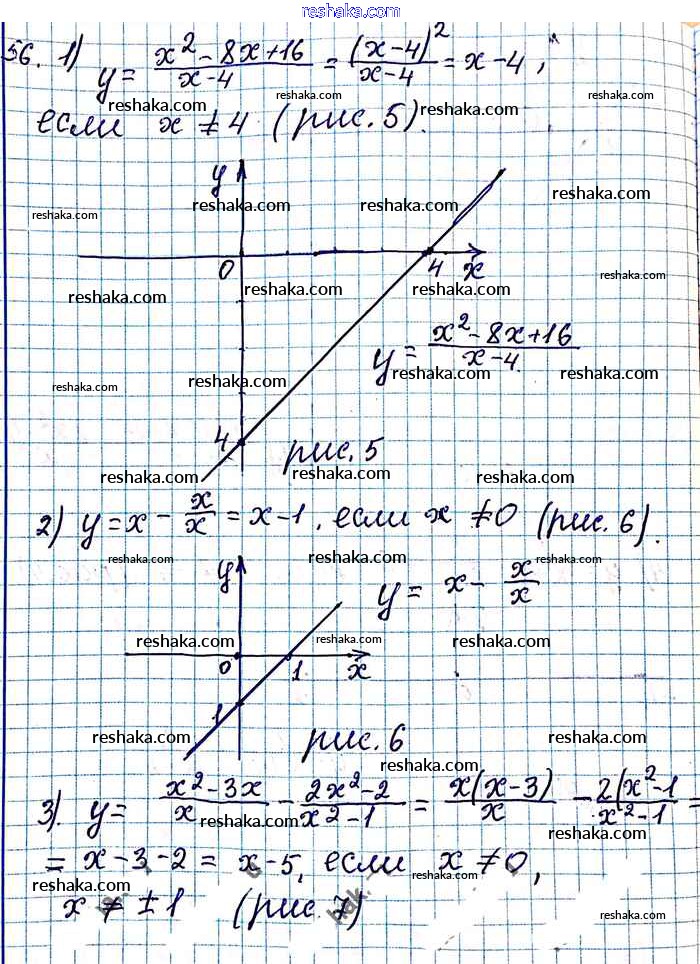 reshaka.com
56. 1) y = (x² - 8x + 16)/(x - 4) = (x - 4)²/(x - 4) = x - 4,
reshaka.com reshaka.com reshaka.com reshaka.com
если x ≠ 4 (рис. 5).
reshaka.com reshaka.com
y
reshaka.com reshaka.com reshaka.com reshaka.com
0 4 x
reshaka.com
reshaka.com reshaka.com reshaka.com
y = (x² - 8x + 16)/(x - 4)
reshaka.com reshaka.com reshaka.com reshaka.com
4
рис. 5
reshaka.com reshaka.com reshaka.com
2) y = x - x/x = x - 1, если x ≠ 0 (рис. 6).
reshaka.com reshaka.com reshaka.com
y y = x - x/x
reshaka.com reshaka.com reshaka.com
0 1 x
1
рис. 6
reshaka.com reshaka.com reshaka.com
3). y = (x² - 3x)/x - (2x² - 2)/(x² - 1) = x(x - 3)/x - 2(x² - 1/(x² - 1 =
reshaka.com reshaka.com reshaka.com
= x - 3 - 2 = x - 5, если x ≠ 0,
reshaka.com reshaka.com reshaka.com
x ≠ ±1 (рис. 7)
reshaka.com